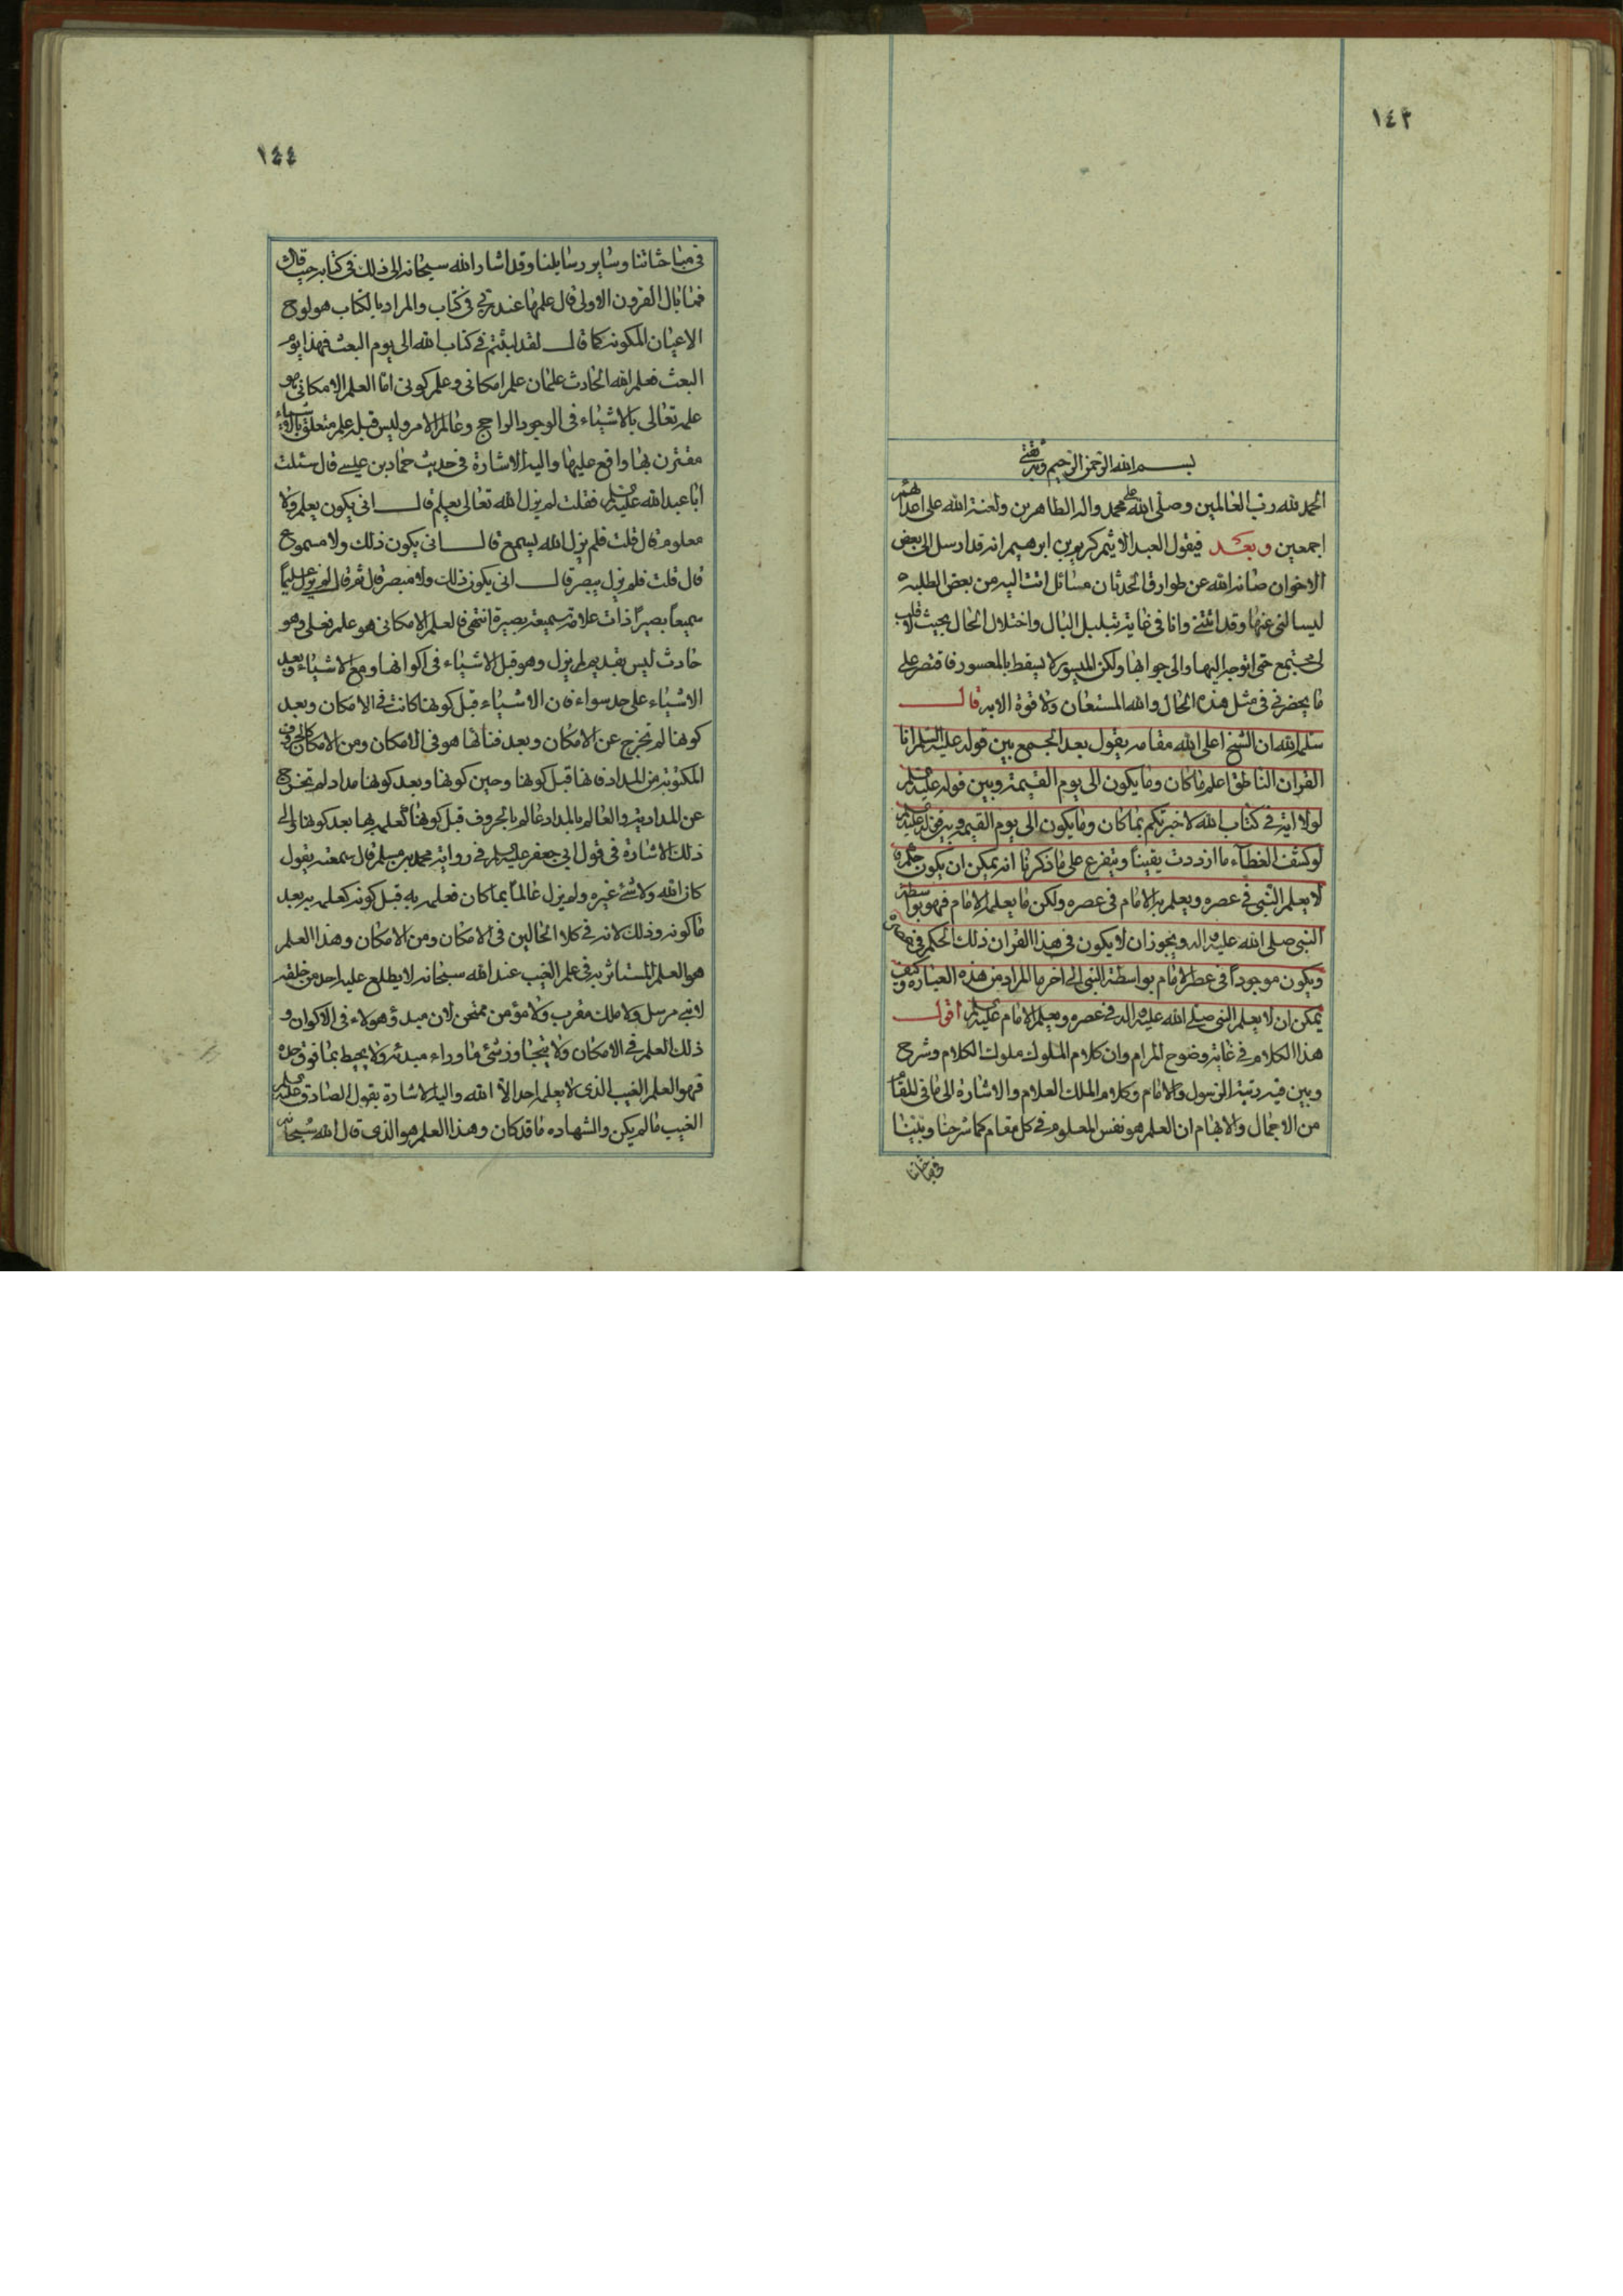 ١٤٣
بسم الله الرحمن الرحيم وبه ثقتي
الحمد لله رب العالمين وصلى الله على محمد واله الطاهرين ولعنة الله على اعدائهم
اجمعين وبعد فيقول العبد الاثيم كريم بن ابرهيم انه قد ارسل الى بعض
الاخوان صانه الله عن طوارق الحدثان مسائل اتت اليه من بعض الطلبه
ليسالنى عنها وقد اتتنى وانا فى غاية تبلبل البال واختلال الحال بحيث لا قلب
لى مجتمع حتى اتوجه اليها والى جوابها ولكن الميسور لا يسقط بالمعسور فاقتصر على
ما يحضرنى فى مثل هذه الحال والله المستعان ولا قوة الا به قال
سلمه الله ان الشيخ اعلى الله مقامه يقول بعد الجمع بين قوله عليه السلم انا
القران الناطق اعلم ما كان وما يكون الى يوم القيمة وبين قوله عليه السلم
لولا اية فى كتاب الله لاخبرتكم بما كان وما يكون الى يوم القيمة وبين قوله عليه السلم
لو كشف الغطآء ما ازددت يقيناً ويتفرع على ما ذكرنا انه يمكن ان يكون حكم ما
لا يعلم النبى فى عصره ويعلم به الامام فى عصره ولكن ما يعلمه الامام فهو بواسطة
النبى صلى الله عليه واله ويجوز ان لا يكون فى هذا القران ذلك الحكم فى عصره
ويكون موجوداً فى عصر الامام بواسطة النبى الى اخر ما المراد من هذه العبارة وكيف
يمكن ان لا يعلم النبى صلى الله عليه واله فى عصره ويعلم الامام عليه السلم اقول
هذا الكلام فى غاية وضوح المرام وان كلام الملوك ملوك الكلام وشرح
وبين فيه رتبة الرسول والامام وكلام الملك العلام والاشارة الى ما فى المقام
من الاجمال والابهام ان العلم هو نفس المعلوم فى كل مقام كما شرحنا وبينا
فى مباحثاتنا
١٤٤
فى مباحثاتنا وساير رسايلنا وقد اشار الله سبحانه الى ذلك فى كتابه حيث قال
فما بال القرون الاولى قال علمها عند ربى فى كتاب والمراد بالكتاب هو لوح
الاعيان المكونة كما قال لقد لبثتم فى كتاب الله الى يوم البعث فهذا يوم
البعث فعلم الله الحادث علمان علم امكانى وعلم كونى اما العلم الامكانى فهو
علمه تعالى بالاشياء فى الوجود الراجح وعالم الامر وليس قبله علم متعلق بالاشياء
مقترن بها واقع عليها واليه الاشارة فى حديث حماد بن عيسى قال سئلت
ابا عبد الله عليه السلم فقلت لم يزل الله تعالى يعلم قال انى يكون يعلم ولا
معلوم قال قلت فلم يزل الله يسمع قال انى يكون ذلك ولا مسموع
قال قلت فلم يزل يبصر قال انى يكون ذلك ولا مبصر قال ثم قال لم يزل عليماً
سميعاً بصيراً ذات علامة سميعة بصيرة انتهى فالعلم الامكانى هو علم فعلى وهو
حادث ليس بقديم لم يزل وهو قبل الاشياء فى اكوانها ومع الاشياء وبعد
الاشياء على حد سواء فان الاشياء قبل كونها كانت فى الامكان وبعد
كونها لم تخرج عن الامكان وبعد فنائها هو فى الامكان ومن الامكان كالحروف
المكتوبة من المداد فانها قبل كونها وحين كونها وبعد كونها مداد لم تخرج
عن المدادية والعالم بالمداد عالم بالحروف قبل كونها كعلمه بها بعد كونها والى
ذلك الاشارة فى قول ابى جعفر عليه السلم فى رواية محمد بن مسلم قال سمعته يقول
كان الله ولا شئ غيره ولم يزل عالماً بما كان فعلمه به قبل كونه كعلمه به بعد
ما كونه وذلك لانه فى كلا الحالين فى الامكان ومن الامكان وهذا العلم
هو العلم المستاثر به فى علم الغيب عند الله سبحانه لا يطلع عليه احد من خلقه
لا نبى مرسل ولا ملك مقرب ولا مؤمن ممتحن لان مبدؤ هولاء فى الاكوان و
ذلك العلم فى الامكان ولا يتجاوز شئ ما وراء مبدئه ولا يحيط بما فوق حده
فهو العلم الغيب الذى لا يعلمه احد الا الله واليه الاشارة بقول الصادق عليه السلم
الغيب ما لم يكن والشهادة ما قد كان وهذا العلم هو الذى قال الله سبحانه